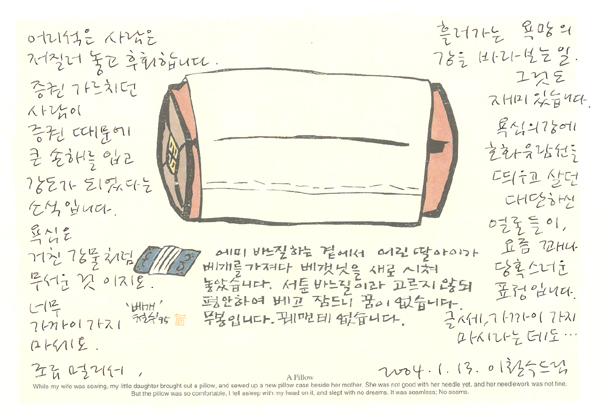 어리석은 사람은
저질러 놓고 후회합니다.
증권 가르치던
사람이
증권 때문에
큰 손해를 입고
강도가 되었다는
소식입니다.
욕심은
거친 강물처럼
무서운 것이지요.
너무
가까이 가지
마세요.
조금 멀리서,
흘러가는 욕망의
강을 바라보는 일.
그것도
재미있습니다.
욕심의 강에
호화유람선을
띄우고 살던
대단하신
얼로들이,
요즘 꽤나
당혹스러운
표정입니다.
글쎄, 가까이 가지
마시라는데도…
2004. 1. 13. 이철수드림
에미 바느질하는 곁에서 어린 딸아이가
베개를 가져다 베갯닛을 새로 시쳐
놓았습니다. 서툰 바느질이라 고르지 않되
편안하여 베고 잠드니 꿈이 없습니다.
무봉입니다. 꿰맨데 없습니다.
'베개'
철수 '95
A Pillow
While my wife was sewing, my little daughter brought out a pillow, and sewed up a new pillow case beside her mother. She was not good with her needle yet, and her needlework was not fine.
But the pillow was so comfortable, I fell asleep with my head on it, and slept with no dreams. It was seamless; No seams.